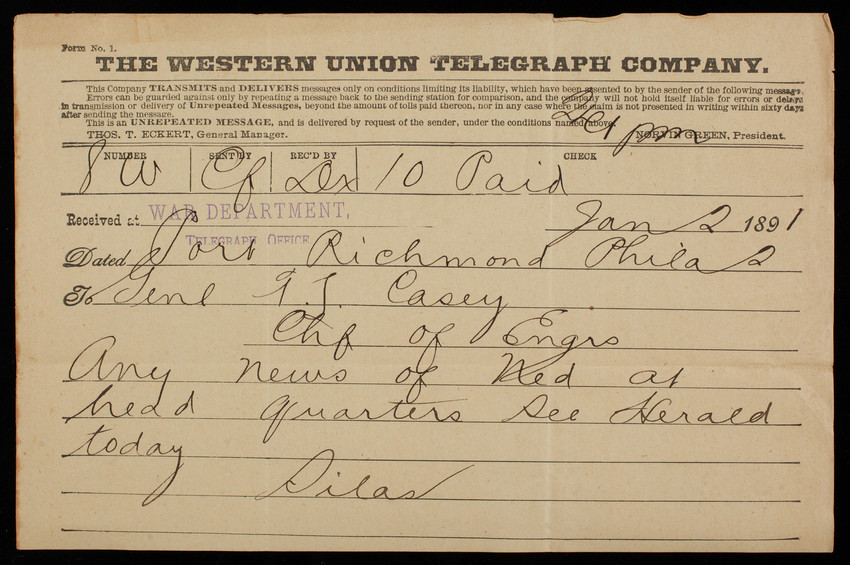 Form No. 1.
THE WESTERN UNION TELEGRAPH COMPANY.
This Company TRANSMITS and DELIVERS messages only on conditions limiting its liability, which have been assented to by the sender of the following message.
Errors can be guarded against only by repeating a message back to the sending station for comparison, and the company will not hold itself liable for errors or delays
in transmission or delivery of Unrepeated Messages, beyond the amount of tolls paid thereon, nor in any case where the claim is not presented in writing within sixty days
after sending the message.
This is an UNREPEATED MESSAGE, and is delivered by request of the sender, under the conditions named above.
THOS. T. ECKERT, General Manager. NORVIN GREEN, President.
pm
NUMBER SENT BY REC'D BY CHECK
8 W Cf Dx 10 Paid
Received at WAR DEPARTMENT, Jan 2 1891
TELEGRAPH OFFICE
Dated Port Richmond Phila 2
To Genl T. L. Casey
Chf of Engrs
Any news of Ned at
head quarters See Herald
today
Silas